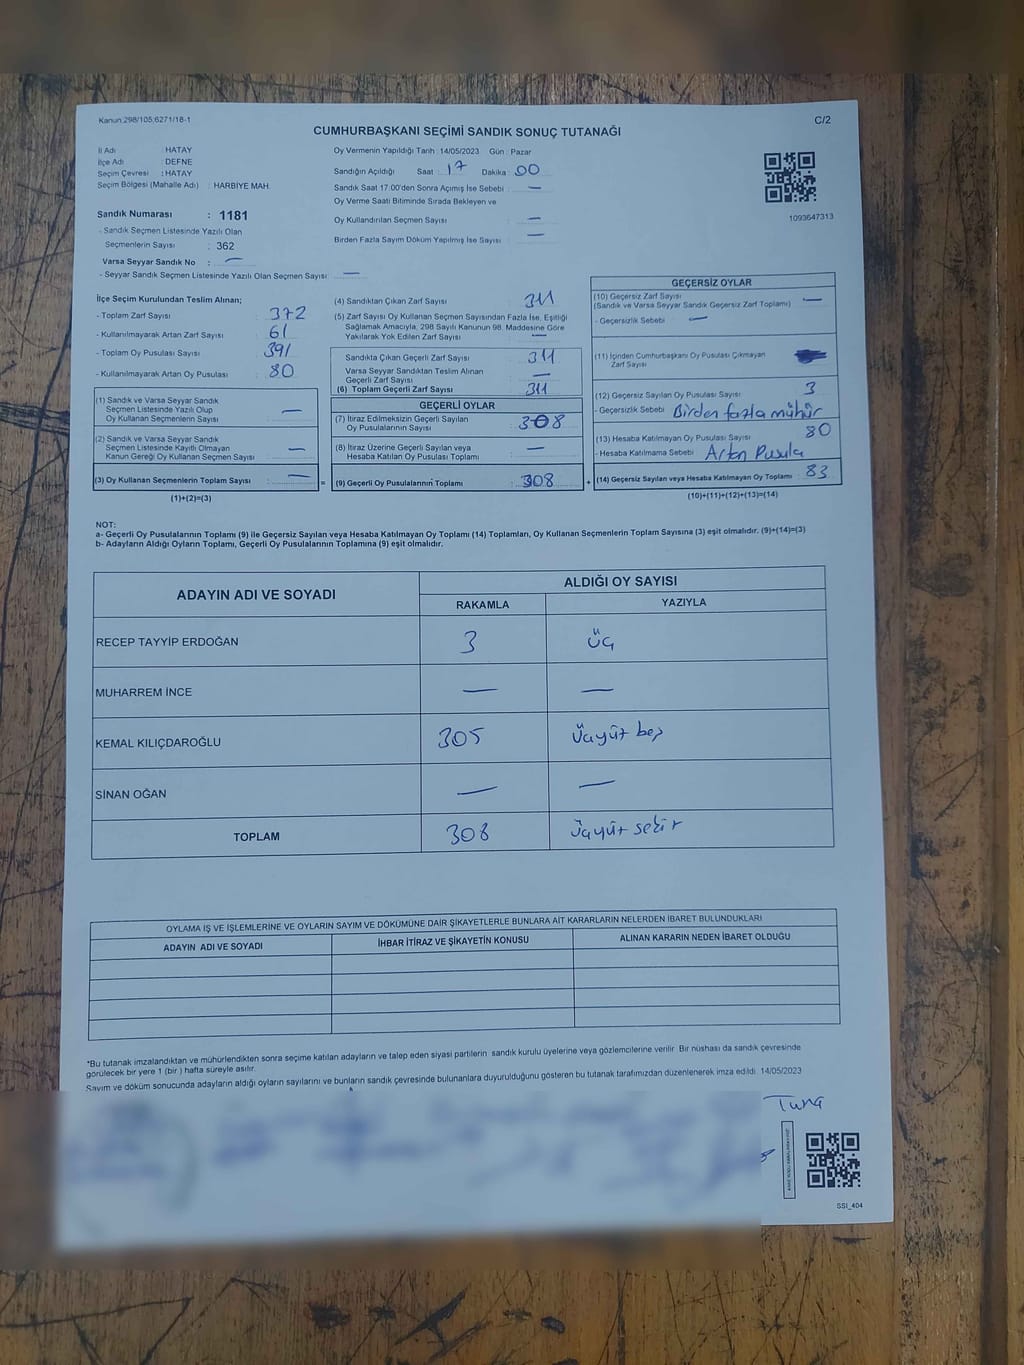 Kanun:298/105;6271/18-1
C/2
CUMHURBAŞKANI SEÇİMİ SANDIK SONUÇ TUTANAĞI
İl Adı : HATAY
İlçe Adı : DEFNE
Seçim Çevresi : HATAY
Seçim Bölgesi (Mahalle Adı) : HARBİYE MAH.
Sandık Numarası : 1181
- Sandık Seçmen Listesinde Yazılı Olan
Seçmenlerin Sayısı : 362
Varsa Seyyar Sandık No : —
- Seyyar Sandık Seçmen Listesinde Yazılı Olan Seçmen Sayısı : —
Oy Vermenin Yapıldığı Tarih :14/05/2023 Gün : Pazar
Sandığın Açıldığı Saat : 17 Dakika : 00
Sandık Saat 17:00'den Sonra Açımış İse Sebebi : —
Oy Verme Saati Bitiminde Sırada Bekleyen ve
Oy Kullandırılan Seçmen Sayısı : —
Birden Fazla Sayım Döküm Yapılmış İse Sayısı : —
1093647313
İlçe Seçim Kurulundan Teslim Alınan;
- Toplam Zarf Sayısı : 372
- Kullanılmayarak Artan Zarf Sayısı : 61
- Toplam Oy Pusulası Sayısı : 391
- Kullanılmayarak Artan Oy Pusulası : 80
(1) Sandık ve Varsa Seyyar Sandık
Seçmen Listesinde Yazılı Olup
Oy Kullanan Seçmenlerin Sayısı : —
(2) Sandık ve Varsa Seyyar Sandık
Seçmen Listesinde Kayıtlı Olmayan
Kanun Gereği Oy Kullanan Seçmen Sayısı : —
(3) Oy Kullanan Seçmenlerin Toplam Sayısı : —
(1)+(2)=(3)
=
(4) Sandıktan Çıkan Zarf Sayısı : 311
(5) Zarf Sayısı Oy Kullanan Seçmen Sayısından Fazla İse, Eşitliği
Sağlamak Amacıyla, 298 Sayılı Kanunun 98. Maddesine Göre
Yakılarak Yok Edilen Zarf Sayısı : —
Sandıkta Çıkan Geçerli Zarf Sayısı : 311
Varsa Seyyar Sandıktan Teslim Alınan
Geçerli Zarf Sayısı : —
(6) Toplam Geçerli Zarf Sayısı : 311
GEÇERLİ OYLAR
(7) İtiraz Edilmeksizin Geçerli Sayılan
Oy Pusulalarının Sayısı : 308
(8) İtiraz Üzerine Geçerli Sayılan veya
Hesaba Katılan Oy Pusulası Toplamı : —
(9) Geçerli Oy Pusulalarının Toplamı : 308
+
GEÇERSİZ OYLAR
(10) Geçersiz Zarf Sayısı
(Sandık ve Varsa Seyyar Sandık Geçersiz Zarf Toplamı) : —
- Geçersizlik Sebebi : —
(11) İçinden Cumhurbaşkanı Oy Pusulası Çıkmayan
Zarf Sayısı
(12) Geçersiz Sayılan Oy Pusulası Sayısı : 3
- Geçersizlik Sebebi : Birden fazla mühür
(13) Hesaba Katılmayan Oy Pusulası Sayısı : 80
- Hesaba Katılmama Sebebi : Artan Pusula
(14) Geçersiz Sayılan veya Hesaba Katılmayan Oy Toplamı : 83
(10)+(11)+(12)+(13)=(14)
NOT:
a- Geçerli Oy Pusulalarının Toplamı (9) ile Geçersiz Sayılan veya Hesaba Katılmayan Oy Toplamı (14) Toplamları, Oy Kullanan Seçmenlerin Toplam Sayısına (3) eşit olmalıdır. (9)+(14)=(3)
b- Adayların Aldığı Oyların Toplamı, Geçerli Oy Pusulalarının Toplamına (9) eşit olmalıdır.
ADAYIN ADI VE SOYADI
ALDIĞI OY SAYISI
RAKAMLA YAZIYLA
RECEP TAYYİP ERDOĞAN 3 üç
MUHARREM İNCE — —
KEMAL KILIÇDAROĞLU 305 Üçyüz beş
SİNAN OĞAN — —
TOPLAM 308 Üçyüz sekiz
OYLAMA İŞ VE İŞLEMLERİNE VE OYLARIN SAYIM VE DÖKÜMÜNE DAİR ŞİKAYETLERLE BUNLARA AİT KARARLARIN NELERDEN İBARET BULUNDUKLARI
ADAYIN ADI VE SOYADI İHBAR İTİRAZ VE ŞİKAYETİN KONUSU ALINAN KARARIN NEDEN İBARET OLDUĞU
*Bu tutanak imzalandıktan ve mühürlendikten sonra seçime katılan adayların ve talep eden siyasi partilerin sandık kurulu üyelerine veya gözlemcilerine verilir. Bir nüshası da sandık çevresinde
görülecek bir yere 1 (bir ) hafta süreyle asılır.
Sayım ve döküm sonucunda adayların aldığı oyların sayılarını ve bunların sandık çevresinde bulunanlara duyurulduğunu gösteren bu tutanak tarafımızdan düzenlenerek imza edildi. 14/05/2023
Tuna
SSI_404